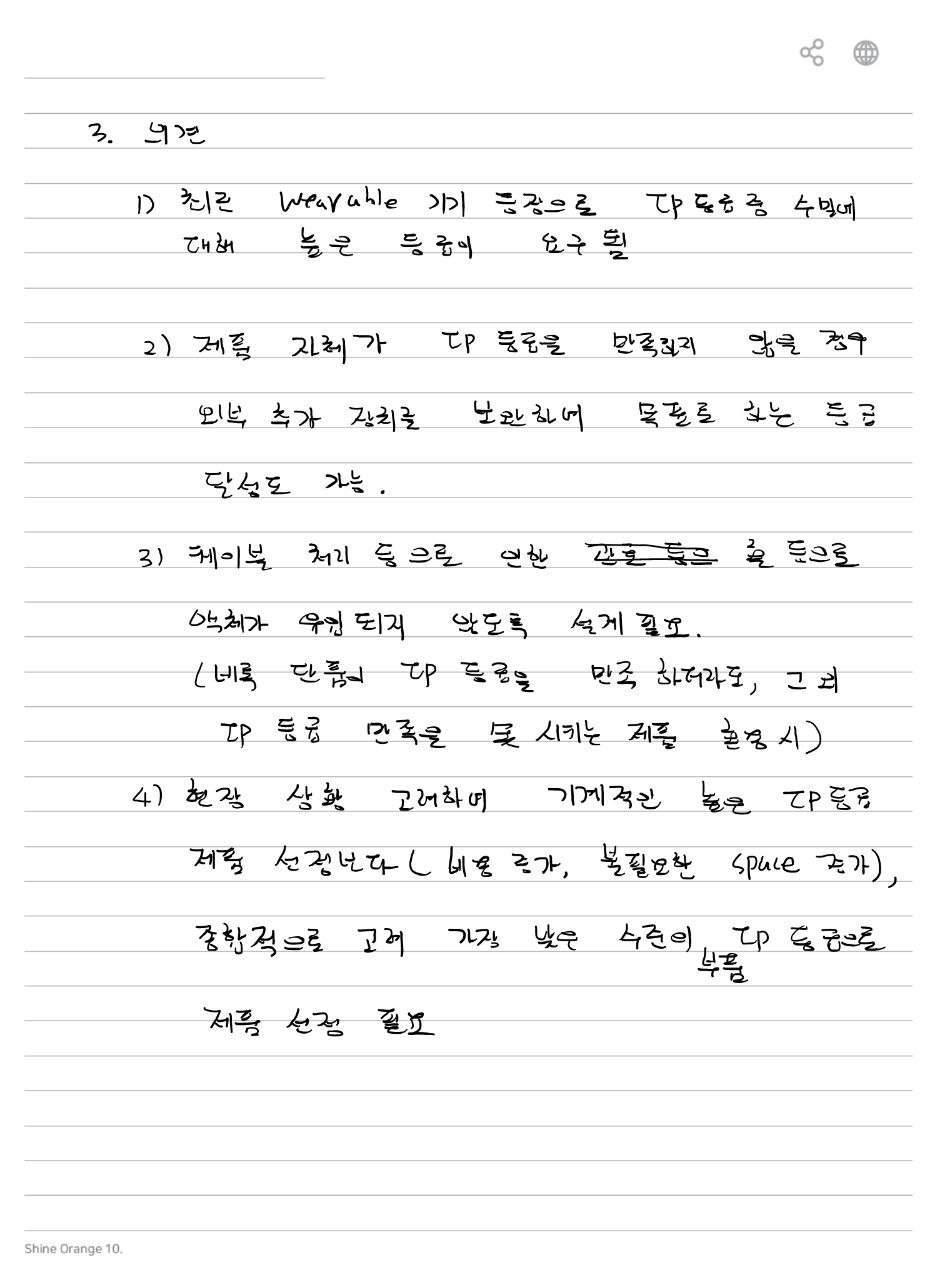 3. 의견
1) 최근 Wearable 기기 등장으로 IP 등급중 수밀에
대해 높은 등급이 요구 됨
2) 제품 자체가 IP 등급을 만족하지 않을 경우
외부 추가 장치를 보완하여 목표로 하는 등급
달성도 가능.
3) 케이블 처리 등으로 인한 홀 등으로
액체가 유입 되지 않도록 설계 필요.
(비록 단품이 IP 등급을 만족 하더라도, 그 외
IP 등급 만족을 못 시키는 제품 혼용 시)
4) 현장 상황 고려하여 기계적인 높은 IP 등급
제품 선정보다 (비용 증가, 불필요한 space 증가),
종합적으로 고려 가장 낮은 수준의 IP 등급으로
부품
제품 선정 필요
Shine Orange 10.